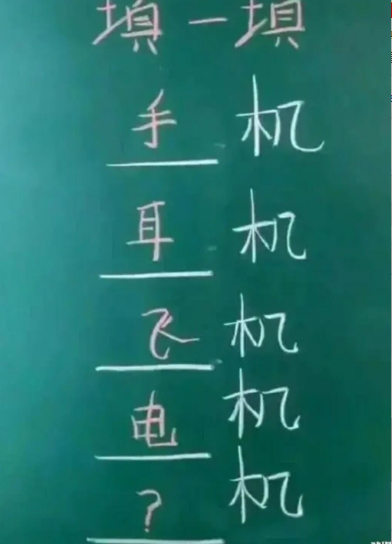 填一填
手机
耳机
飞机
电机
?机